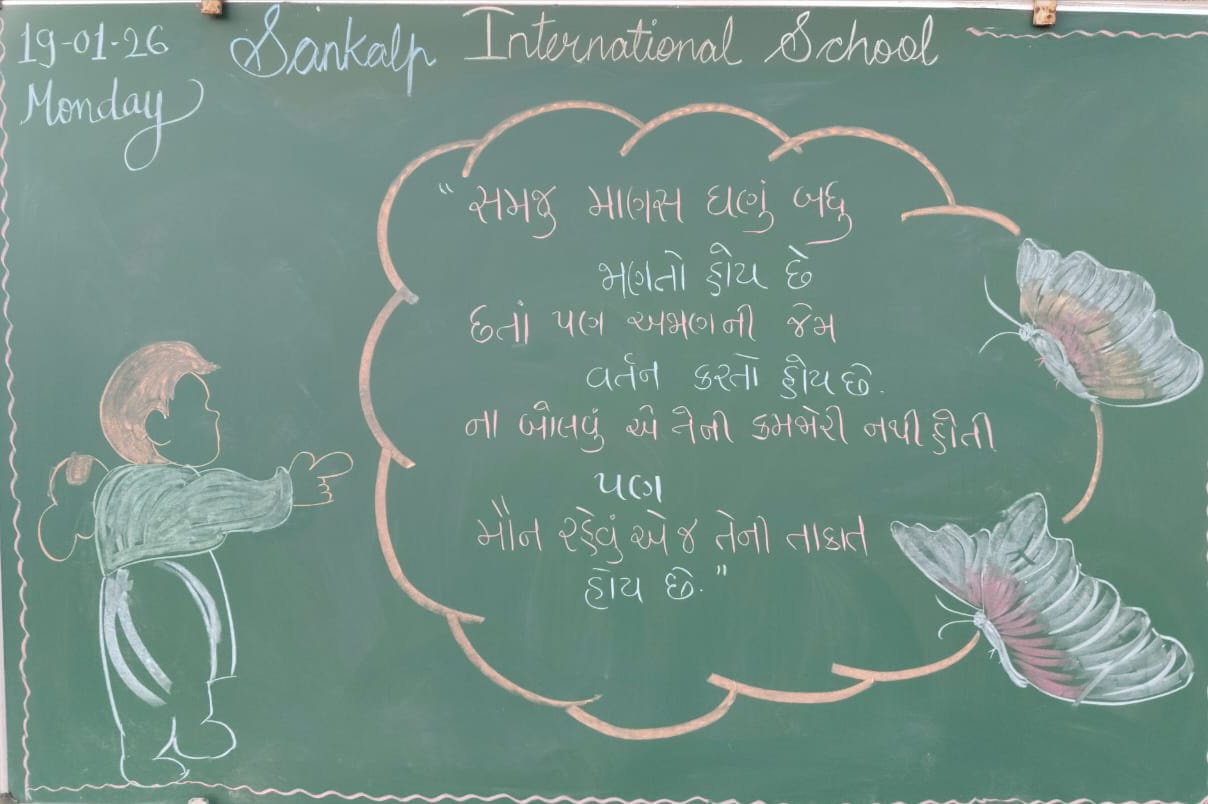 19-01-26 Sankalp International School
Monday
“સમજુ માણસ ઘણું બધુ
ભણતો હોય છે
છતાં પણ અભણની જેમ
વર્તન કરતો હોય છે.
ના બોલવું એ તેની કમજોરી નથી હોતી
પણ
મૌન રહેવું એ જ તેની તાકાત
હોય છે.”